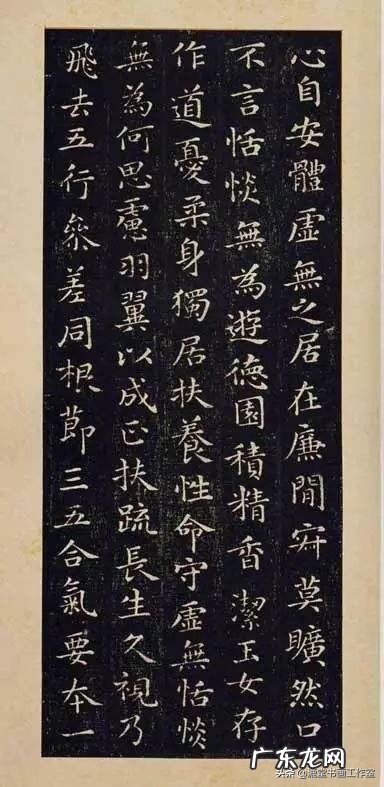 心自安體虛無之居在廉間寂莫曠然口
不言恬惔無為遊德園積精香潔玉女存
作道憂柔身獨居扶養性命守虛無恬惔
無為何思慮羽翼以成正扶疏長生久視乃
飛去五行參差同根節三五合氣要本一
广东龙网